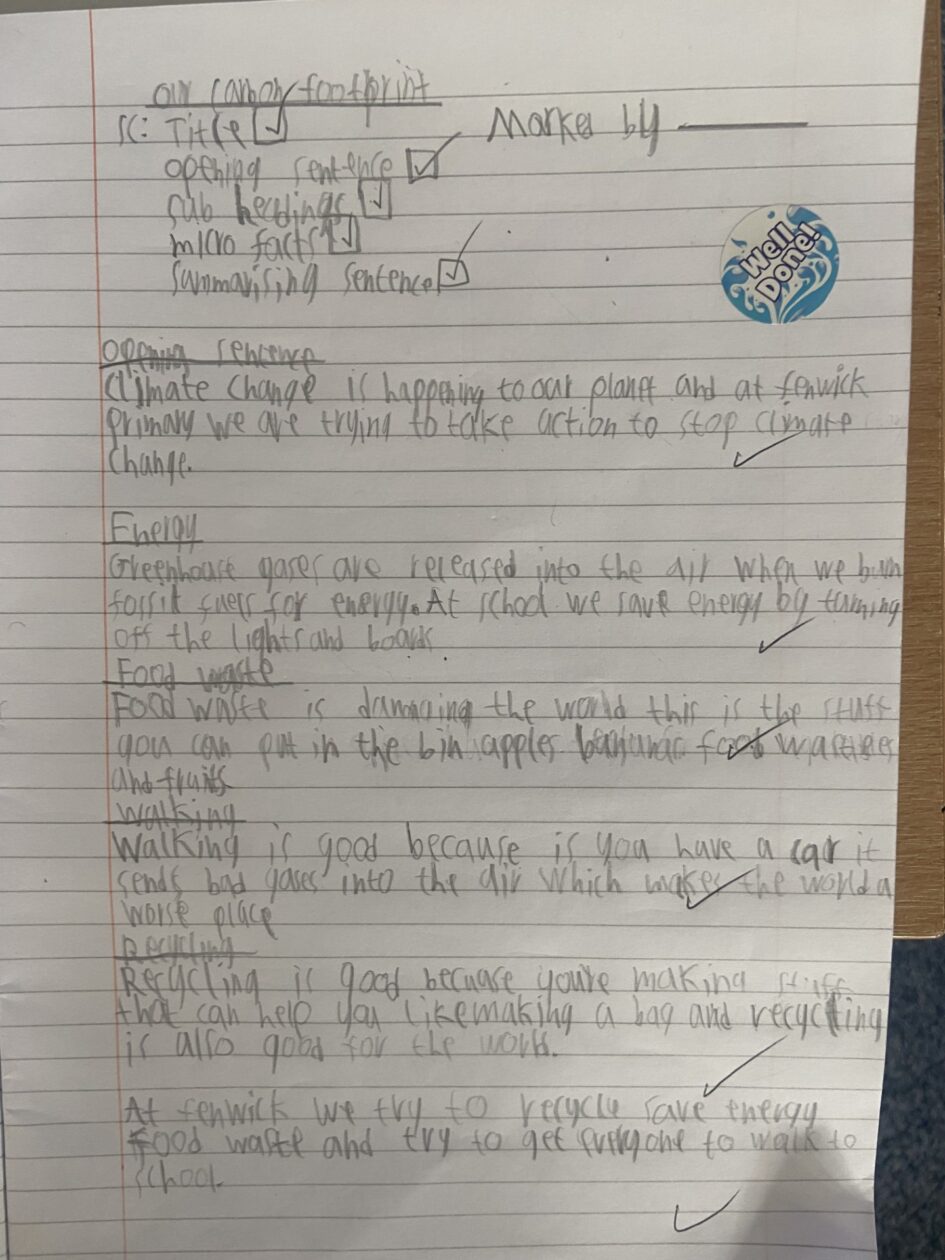 our carbon footprint
SC: Title
Marked by
opening sentence
sub headings
micro facts
summarising sentence
Well Done!
Opening sentence
Climate change is happening to our planet and at fenwick
primary we are trying to take action to stop climate
change.
Energy
Greenhouse gases are released into the air when we burn
fossil fuels for energy. At school we save energy by turning
off the lights and boards
Food waste
Food waste is damaging the world this is the stuff
you can put in the bin apples food
and fruits
Walking
Walking is good because is you have a car it
sends bad gases into the air which makes the world a
worse place
Recycling
Recycling is good becuase you're making stuff
that can help you like making a bag and recycling
is also good for the world.
At fenwick we try to recycle save energy
Food waste and try to get everyone to walk to
school.